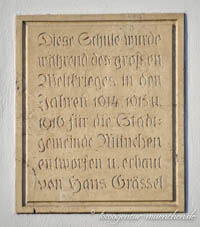 Diese Schule wurde
während des großen
Weltkrieges in den
Jahren 1914, 1915 u.
1916 für die Stadt=
gemeinde München
entworfen u. erbaut
von Hans Grässel
fotogentur-muenchen.de